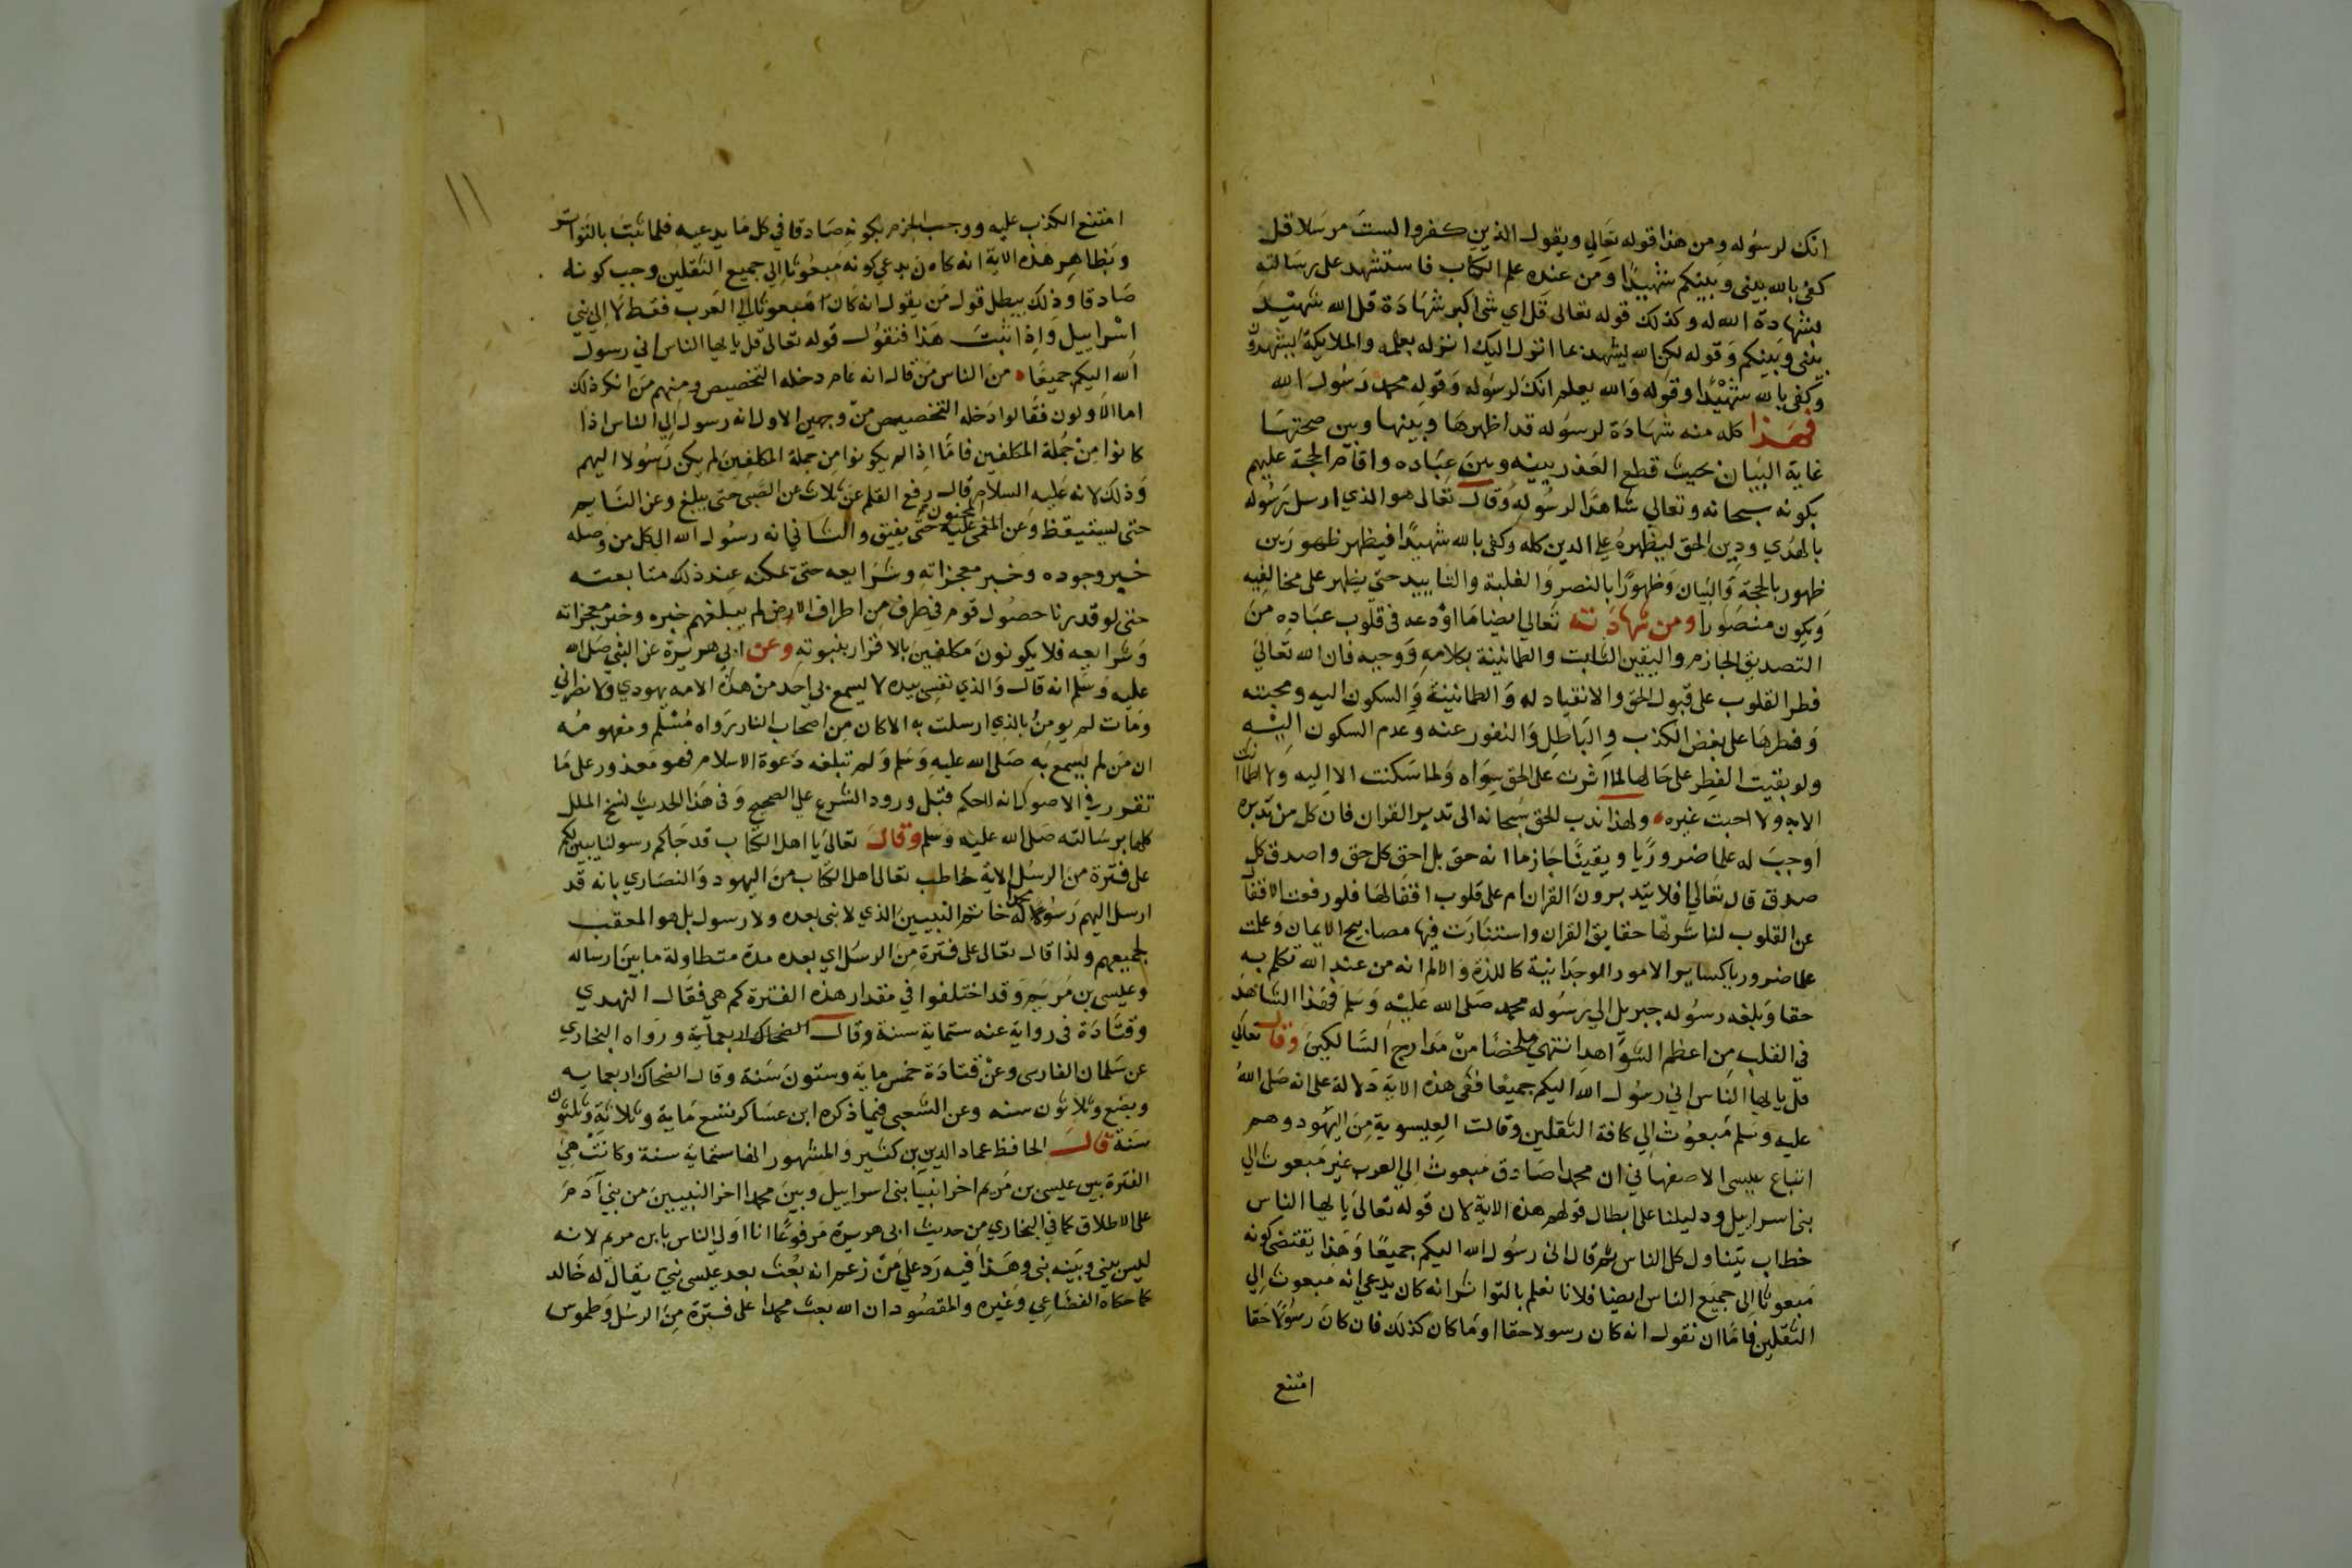 انك لرسوله ومن هذا قوله تعالي ويقول الذين كفروا لست مرسلا قل
كفى بالله بيني وبينكم شهيدا ومن عنده علم الكتاب فاستشهد على رسالته
بشهادة الله له وكذلك قوله تعالى قل اي شي اكبر شهادة قل الله شهيد
بيني وبينكم وقوله لكن الله يشهد بما انزل اليك انزله بعلمه والملايكة يشهدون
وكفى بالله شهيدا وقوله والله يعلم انك لرسوله وقوله محمد رسول الله
فهذا كله منه شهادة لرسوله قد اظهرها وبينها وبين صحتها
غاية البيان بحيث قطع العذر بينه وبين عباده واقام الحجة عليهم
بكونه سبحانه وتعالي شاهدا لرسوله وقال تعالى هو الذي ارسل رسوله
بالهدي ودين الحق ليظهره علي الدين كله وكفى بالله شهيدا فيظهر ظهورين
ظهور بالحجة والبيان وظهورا بالنصر والغلبة والتاييد حتى يظهر على مخالفيه
ويكون منصورا ومن شهادته تعالي ايضا ما اودعه في قلوب عباده من
التصديق الجازم واليقين الثابت والطمانينة بكلامه ووحيه فان الله تعالى
فطر القلوب على قبول الحق والانقياد له والطمانينة والسكون اليه ومحبته
وفطرها على بغض الكذب والباطل والنفور عنه وعدم السكون اليه
ولو بقيت الفطر على حالها لما اثرت على الحق سواه ولما سكنت الا اليه ولا اطمانت
الا به ولا احبت غيره ولهذا ندب الحق سبحانه الى تدبر القران فان كل من تدبره
اوجب له علما ضروريا ويقينا جازما انه حق بل احق كل حق واصدق كل
صدق قال تعالي افلا يتدبرون القران ام على قلوب اقفالها فلو رفعت الاقفال
عن القلوب لباشرتها حقايق القران واستنارت فيها مصابيح الايمان وعلمت
علما ضروريا كساير الامور الوجدانية كاللذة والالم انه من عند الله تكلم به
حقا وبلغه رسوله جبريل الي رسوله محمد صلى الله عليه وسلم فهذا الشاهد
في القلب من اعظم الشواهد انتهي ملخصا من مدارج السالكين وقال تعالي
قل يا ايها الناس اني رسول الله اليكم جميعا ففي هذه الاية دلالة على انه صلى الله
عليه وسلم مبعوث الي كافة الثقلين وقالت العيسوية من اليهود وهم
اتباع عيسى الاصفهاني ان محمدا صادق مبعوث الي العرب غير مبعوث الي
بني اسراييل ودليلنا على ابطال قولهم هذه الاية لان قوله تعالى يا ايها الناس
خطاب يتناول كل الناس ثم قال اني رسول الله اليكم جميعا وهذا يقتضي كونه
مبعوثا الى جميع الناس ايضا فلانا نعلم بالتواتر انه كان يدعي انه مبعوث الي
الثقلين فاما ان نقول انه كان رسولا حقا او ما كان كذلك فان كان رسولا حقا
امتنع
١١
امتنع الكذب عليه ووجب الجزم بكونه صادقا في كل ما يدعيه فلما ثبت بالتواتر
وبظاهر هذه الاية انه كان يدعي كونه مبعوثا الي جميع الثقلين وجب كونه
صادقا وذلك يبطل قول من يقول انه كان مبعوثا الي العرب فقط لا الي بني
اسراييل واذا ثبت هذا فنقول قوله تعالى قل يا ايها الناس اني رسول
الله اليكم جميعا من الناس من قال انه عام دخله التخصيص ومنهم من انكر ذلك
اما الاولون فقالوا دخله التخصيص من وجهين الاول انه رسول الي الناس اذا
كانوا من جملة المكلفين فاما اذا لم يكونوا من جملة المكلفين لم يكن رسولا اليهم
وذلك لانه عليه السلام قال رفع القلم عن ثلاث عن الصبي حتى يبلغ وعن النايم
حتى يستيقظ وعن المجنون المغمى عليه حتى يفيق والثاني انه رسول الله الى كل من وصله
خبر وجوده وخبر معجزاته وشرايعه حتى تمكنه عند ذلك متابعته
حتى لو قدرنا حصول قوم في طرف من اطراف الارض لم يبلغهم خبره وخبر معجزاته
وشرايعه فلا يكونون مكلفين بالاقرار بنبوته وعن ابي هريرة عن النبي صلى الله
عليه وسلم انه قال والذي نفسي بيده لا يسمع بي احد من هذه الامه يهودي ولا نصراني
ومات لم يومن بالذي ارسلت به الا كان من اصحاب النار رواه مسلم ومفهومه
ان من لم يسمع به صلى الله عليه وسلم ولم تبلغه دعوة الاسلام فهو معذور على ما
تقرر في الاصول انه لا حكم قبل ورود الشرع على الصحيح وفي هذا الحديث نسخ الملل
كلها برسالته صلى الله عليه وسلم وقال تعالي يا اهل الكتاب قد جاكم رسولنا يبين لكم
على فترة من الرسل الاية خاطب تعالى اهل الكتاب من اليهود والنصاري بانه قد
ارسل اليهم رسوله محمدا خاتم النبيين الذي لا نبي بعده ولا رسول بل هو المعقب
لجميعهم ولذا قال تعالى على فترة من الرسل اي بعد مدة متطاولة ما بين ارساله
وعيسى بن مريم وقد اختلفوا في مقدار هذه الفترة كم هي فقال النهدي
وقتادة في رواية عنه ستماية سنة وقال الضحاك اربعماية ورواه البخاري
عن سلمان الفارسي وعن قتادة خمس ماية وستون سنة وقال الضحاك اربعمايه
وبضع وثلاثون سنه وعن الشعبي فيما ذكره ابن عساكر تسع ماية وثلاثة وثلثون
سنة قال الحافظ عماد الدين بن كثير والمشهور انها ستماية سنة وكانت هي
الفترة بين عيسى بن مريم اخر انبيا بني اسراييل وبين محمد اخر النبيين من بني آدم
على الاطلاق كما في البخاري من حديث ابي هريرة مرفوعا انا اولي الناس بابن مريم لانه
ليس بيني وبينه نبي وهذا فيه رد علي من زعم انه بعث بعد عيسى نبي يقال له خالد
كما حكاه القضاعي وغيره والمقصود ان الله بعث محمدا على فترة من الرسل وطموس